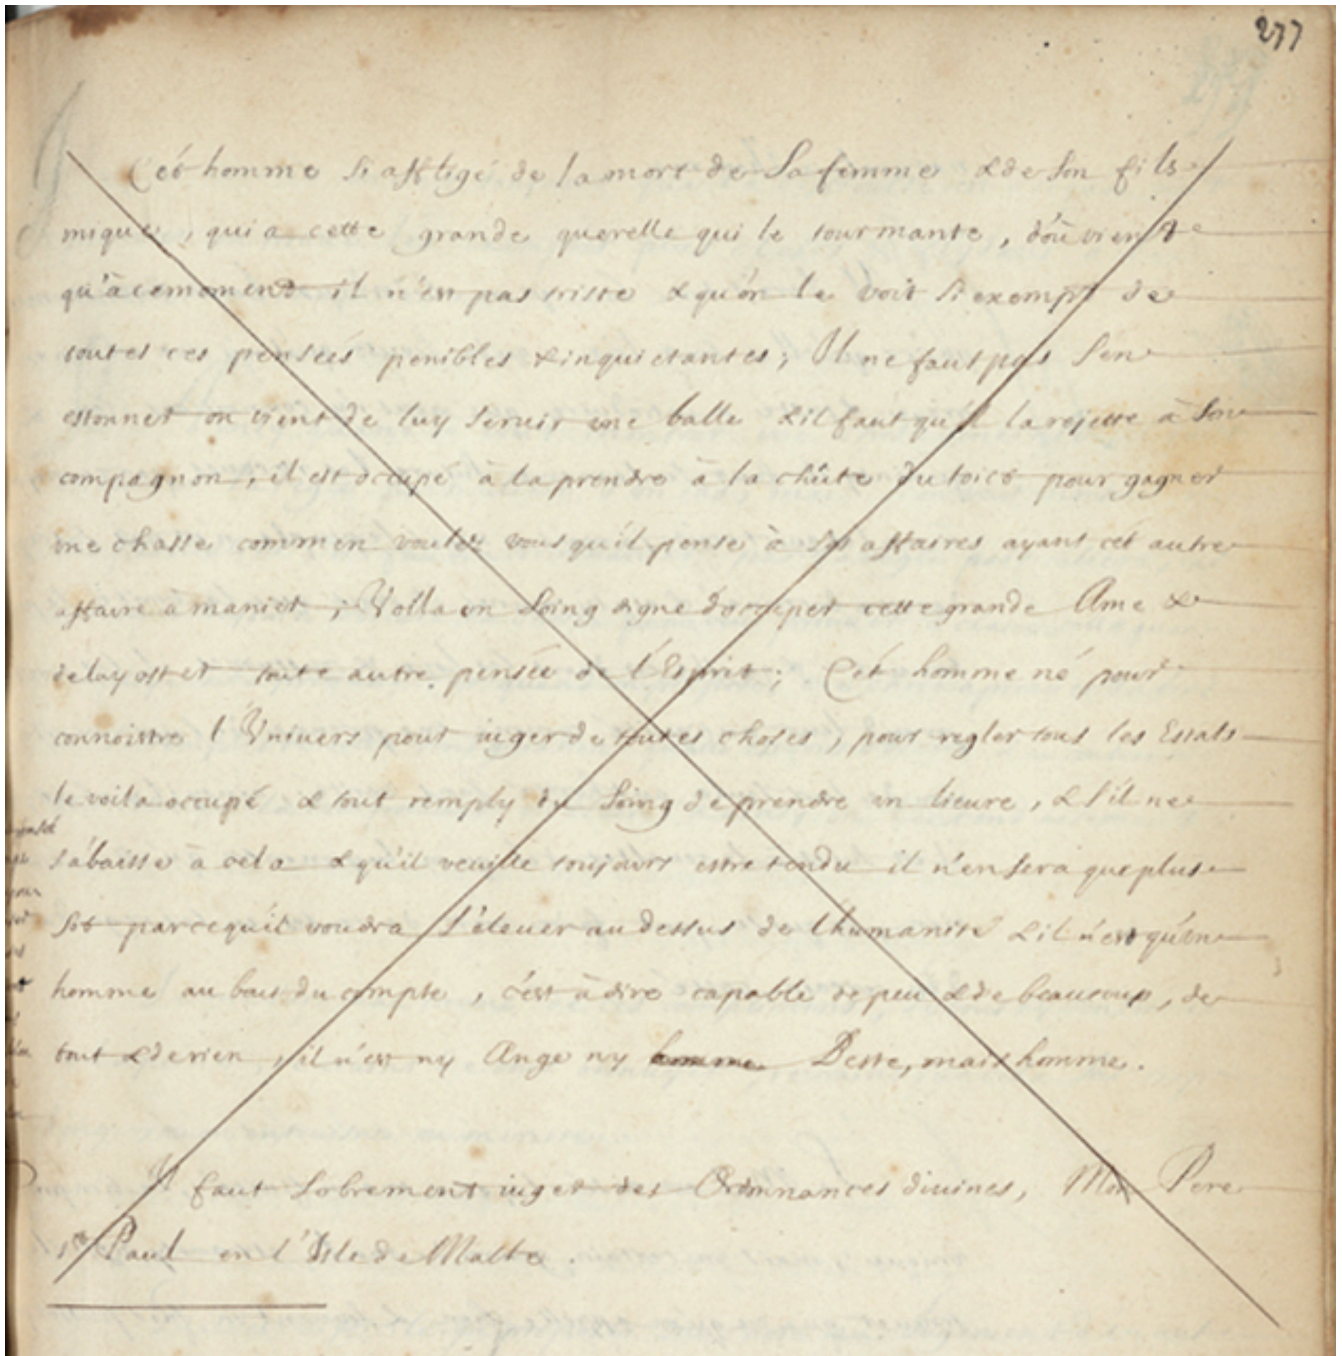 277
Cét homme si affligé de la mort de Sa femme & de Son fils
mique, qui a cette grande querelle qui le tourmante, d'où vient
qu'à ce moment il n'est pas triste & qu'on le voit si exempt de
toutes ces pensées penibles & inquietantes; Il ne faut pas S'en
estonner on vient de luy Seruir vne balle & il faut qu'il la rejette à Son
compagnon, il est occupé à la prendre à la chûte du toict pour gagner
vne chasse commen voulez vous qu'il pense à Ses affaires ayant cét autre
affaire à manier; Voila vn Soing digne d'occuper cette grande Ame &
de luy oster toute autre pensée de l'Esprit; Cét homme né pour
connoistre l'Vniuers pour iuger de toutes choses, pour regler tous les Estats
le voila occupé & tout remply du Soing de prendre vn lieure, & s'il ne
s'abaisse à cela & qu'il veuille toujours estre tendu il n'en Sera que plus
Sot parcequ'il voudra S'éleuer au dessus de l'humanité & il n'est qu'vn
homme au bout du compte, c'est à dire capable de peu & de beaucoup, de
tout & de rien, il n'est ny Ange ny homme Beste, mais homme.
Il faut Sobrement iuger des Ordonnances diuines, Mon Pere
St Paul en l'Isle de Malte.